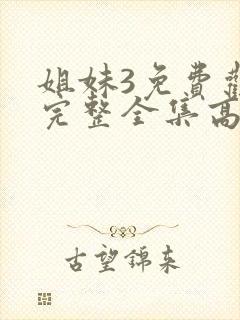 姐妹3免費
完整全集高
古望錦来